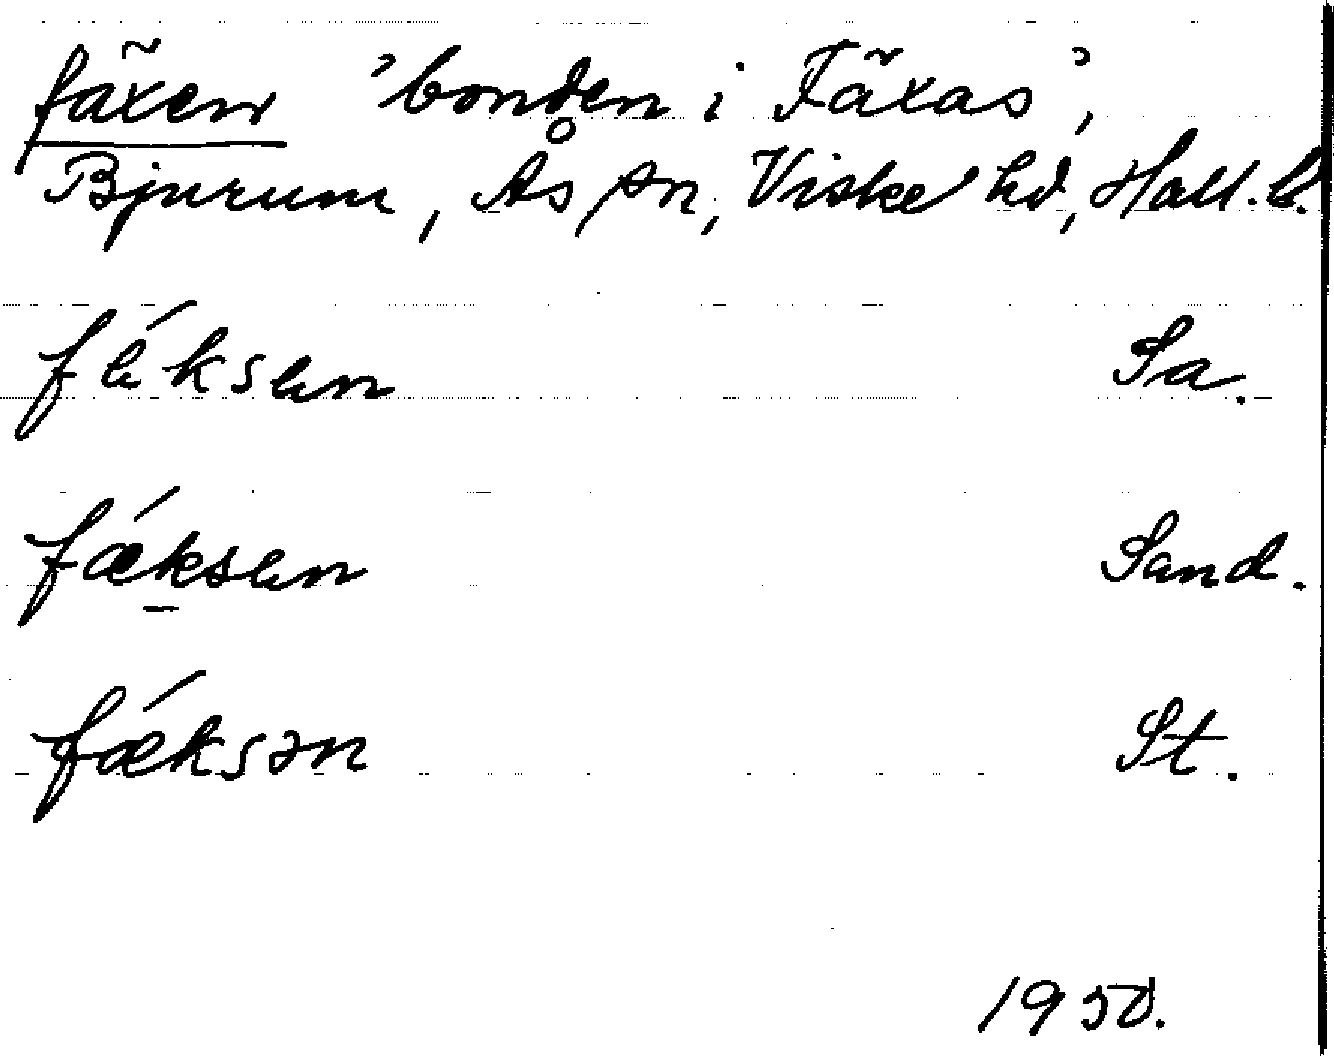 fäxen 'bonden i Fäxas',
Bjurum, Ås sn, Viske hd, Hall. l.
fáksan Sa.
fǽksan Sand.
fǽksən St.
1950.